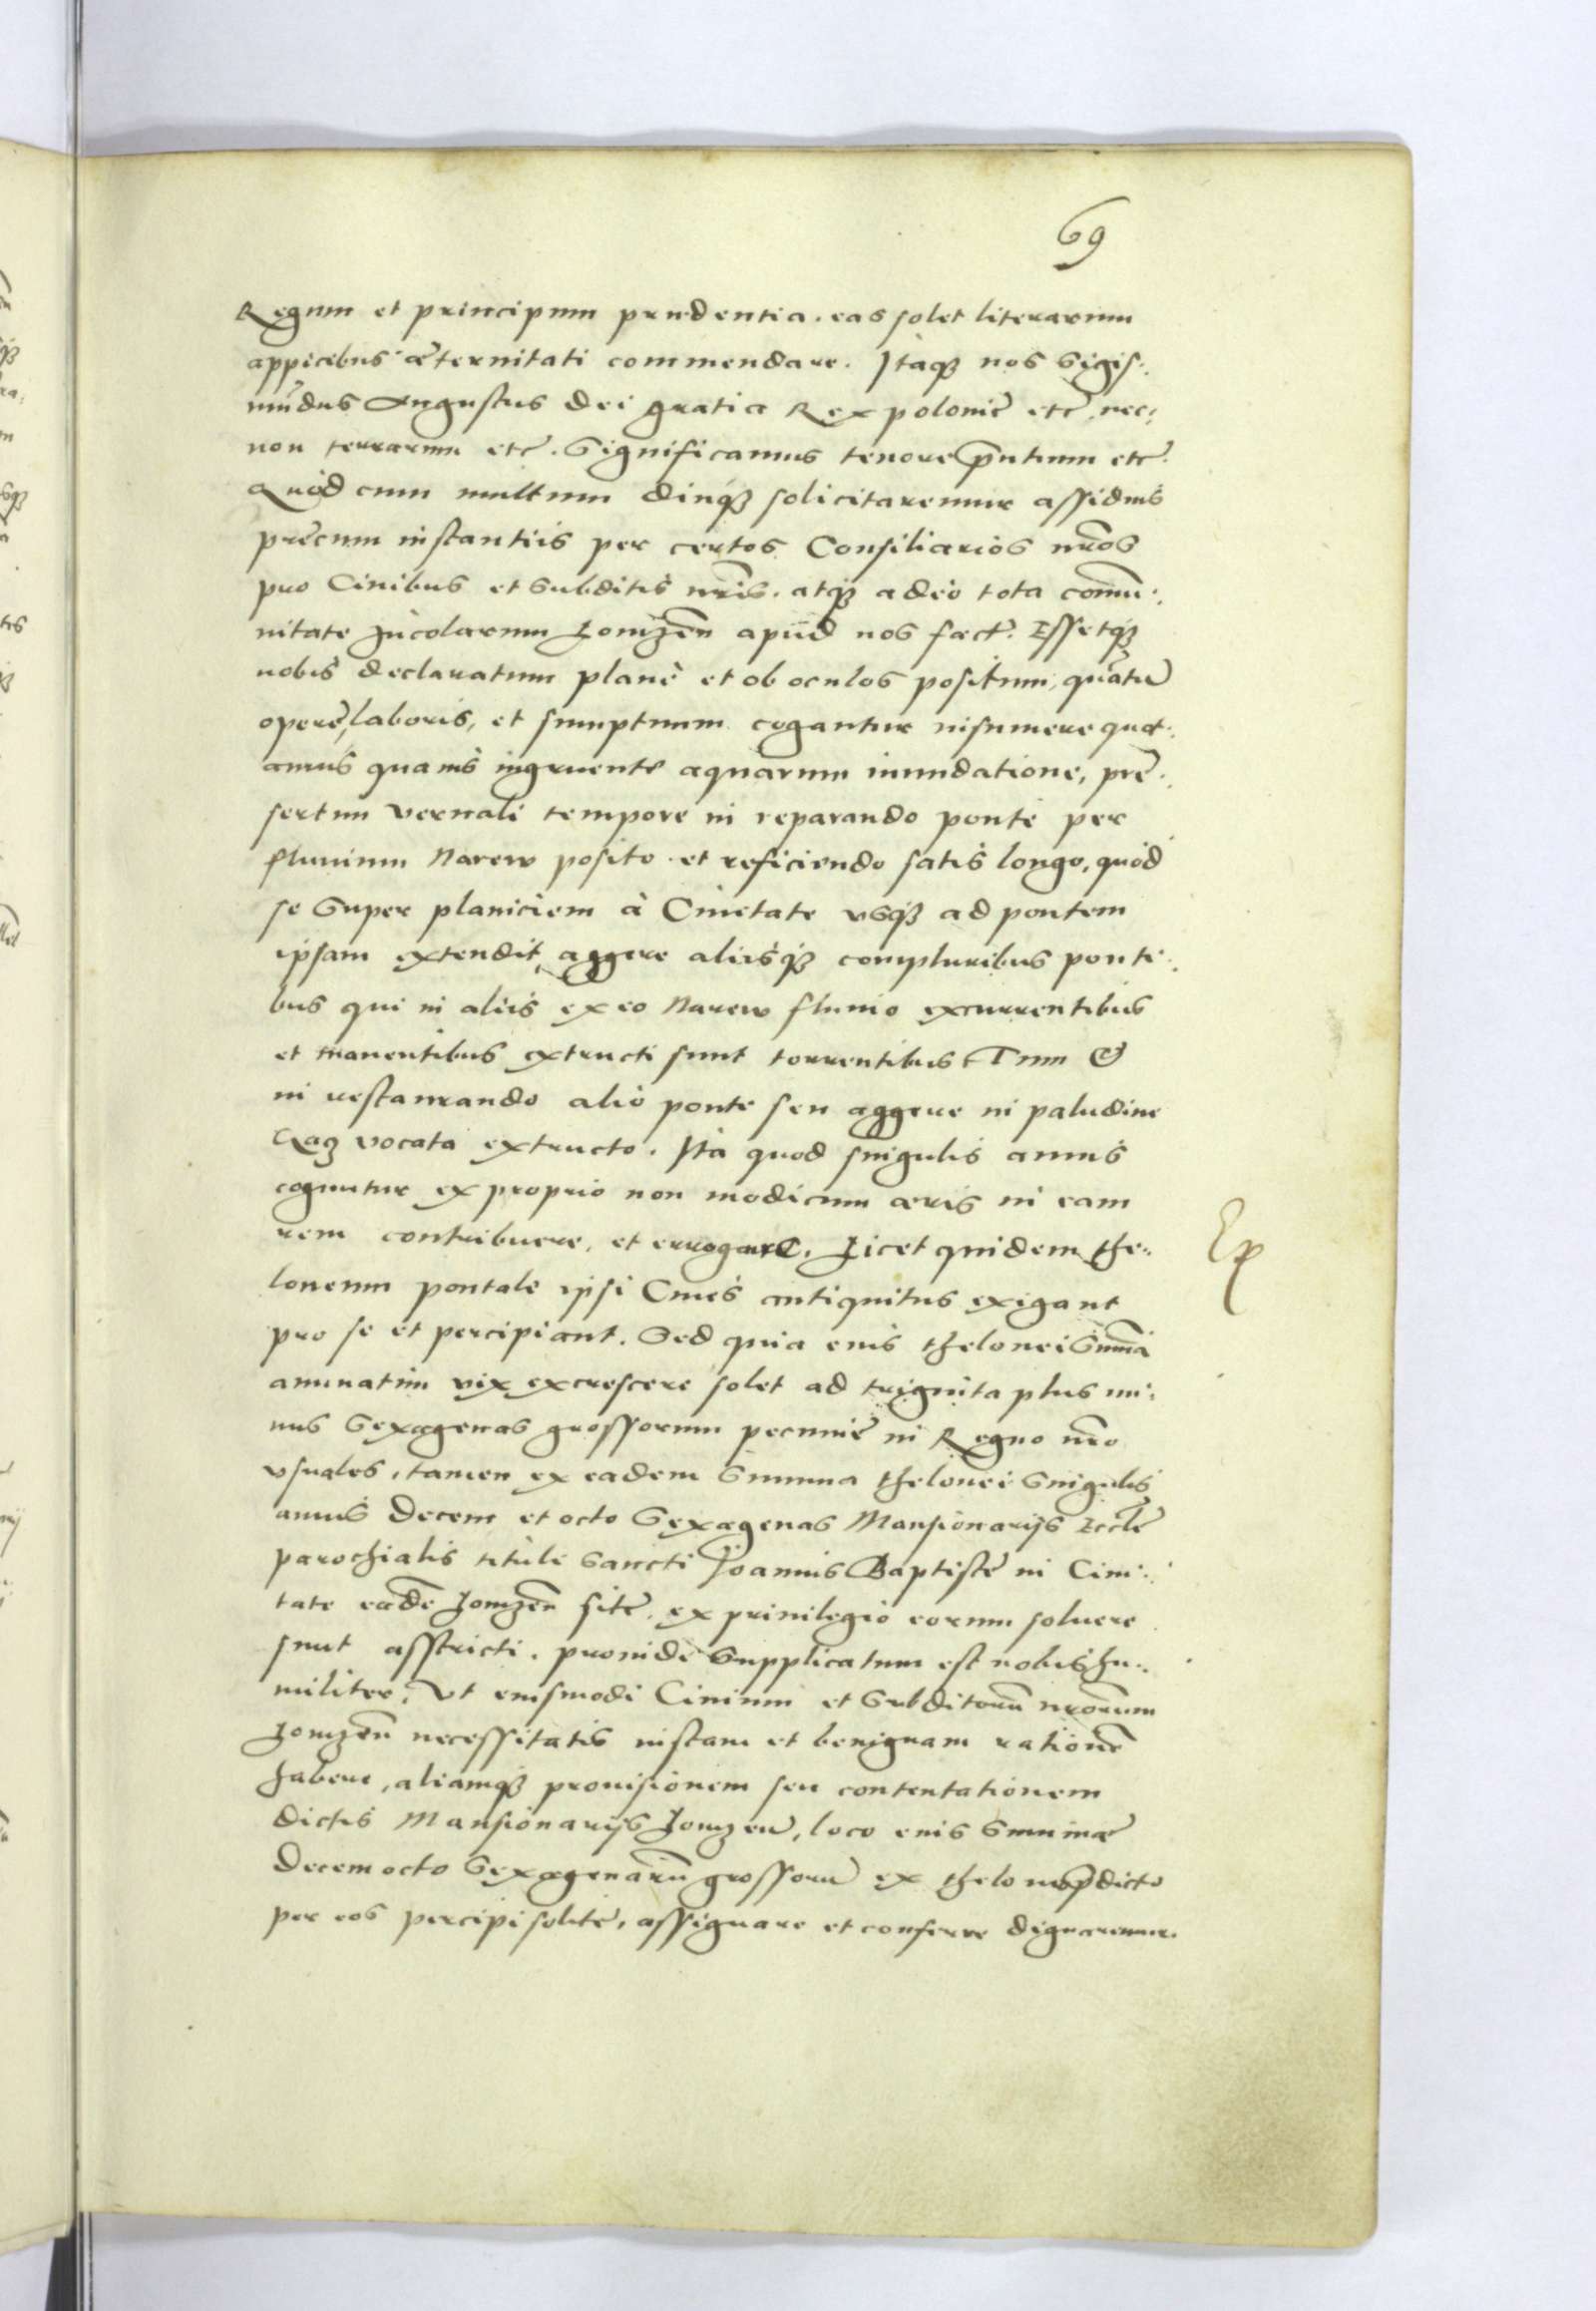 69
Regum et principum prudentia. eas solet literarum
appicibus æternitati commendare. Itaq3 nos Sigis:
mũdus Augustus Dei gratia Rex polonie etc̃ nec:
non terrarum etc̃. Significamus tenore p̃ntium etc̃.
Quòd cum multum diuq3 solicitaremur assiduis
precum instantiis per certos Consiliarios nr̃os
pro Ciuibus et Subditis nr̃is. atq3 adeo tota com̃u:
nitate Incolarum Lomzen̄ apud nos fact. Essetq3
nobis declaratum planè et ob oculos positum, quãtũ
operę, laboris, et sumptuum cogantur insumere quot:
annis quauis ingruente aquarum inundatione, prę:
sertim vernali tempore in reparando ponte per
fluuium Narew posito et reficiendo satis longo, quòd
se Super planiciem à Ciuitate vsq3 ad pontem
ipsam extendit, aggere aliisq3 compluribus ponti:
bus qui in aliis ex eo Narew fluuio excurrentibus
et manentibus extructi sunt torrentibus Tum &
in restaurando alio ponte seu aggere in paludine
vocata extructo. Ita quod singulis annis
coguntur ex proprio non modicum æris in eam
rem contribuere, et errogare. Licet quidem the:
loneum pontale ipsi Ciues antiquitus exigant
pro se et percipiant. Sed quia euis thelonei Sum̃a
annuatim vix excrescere solet ad triginta plus mi:
nus Sexagenas grossorum pecunię in Regno nr̃o
vsuales, tamen ex eadem Summa thelonei Singulis
annis Decem et octo Sexagenas Mansionarijs Eccl̃ę
parochialis tituli Sancti Joannis Baptistę in Ciui:
tate eãdẽ Lomzen̄ sitę, ex priuilegio eorum soluere
sunt asstricti. proinde Supplicatum est nobis hu:
militer, Vt eiusmodi Ciuium et Subditorũ nr̃orum
Lomzen̄ necessitatis iustam et benignam rationẽ
habere, aliamq3 prouisionem seu contentationem
dictis Mansionarijs Lomzen̄, loco euis Summæ
Decemocto Sexagenarũ grossorũ ex theloneo p̃dicto
per eos percipi solitę, assignare et conferre dignaremur.